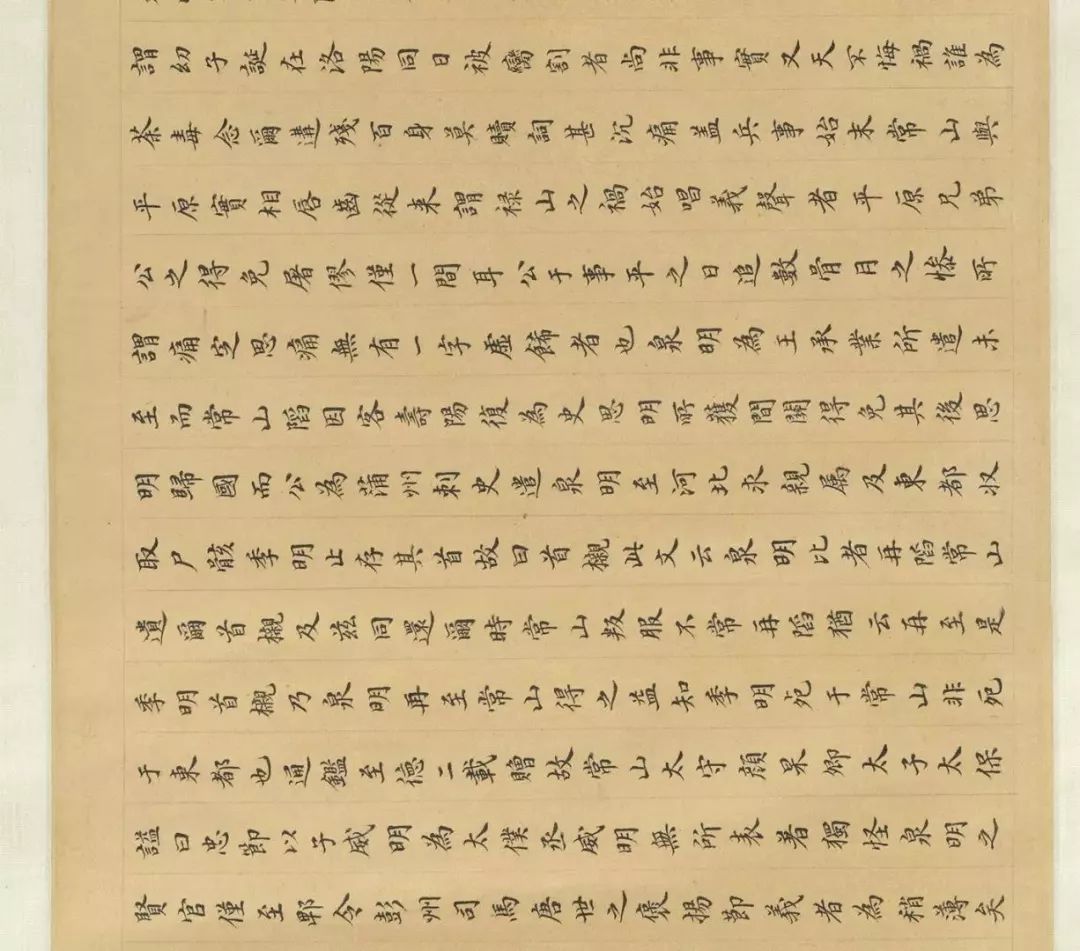 謂幼子誕在洛陽同日被臠割者尚非事實又天不悔禍誰為
荼毒念爾遘殘百身莫贖詞甚沉痛盖兵事始末常山與
平原實相唇齒從来謂禄山之禍始唱義聲者平原兄弟
公之得免屠僇僅一間耳公于事平之日追數骨月之惨所
謂痛定思痛無有一字虛飾者也泉明為王承業所遣未
至而常山陷因客壽陽復為史思明所獲間關得免其後思
明歸國而公為蒲州刺史遣泉明至河北求親属及東都收
取尸骸季明止存其首故曰首櫬此文云泉明比者再陷常山
遺爾首櫬及兹同還爾時常山叛服不常再陷猶云再至是
季明首櫬乃泉明再至常山得之益知季明死于常山非死
于東都也通鑑至德二載贈故常山太守顔杲卿太子太保
謚曰忠節以子威明為太僕丞威明無所表著獨怪泉明之
賢官僅至郫令彭州司馬唐世之褒揚節義者為稍薄矣